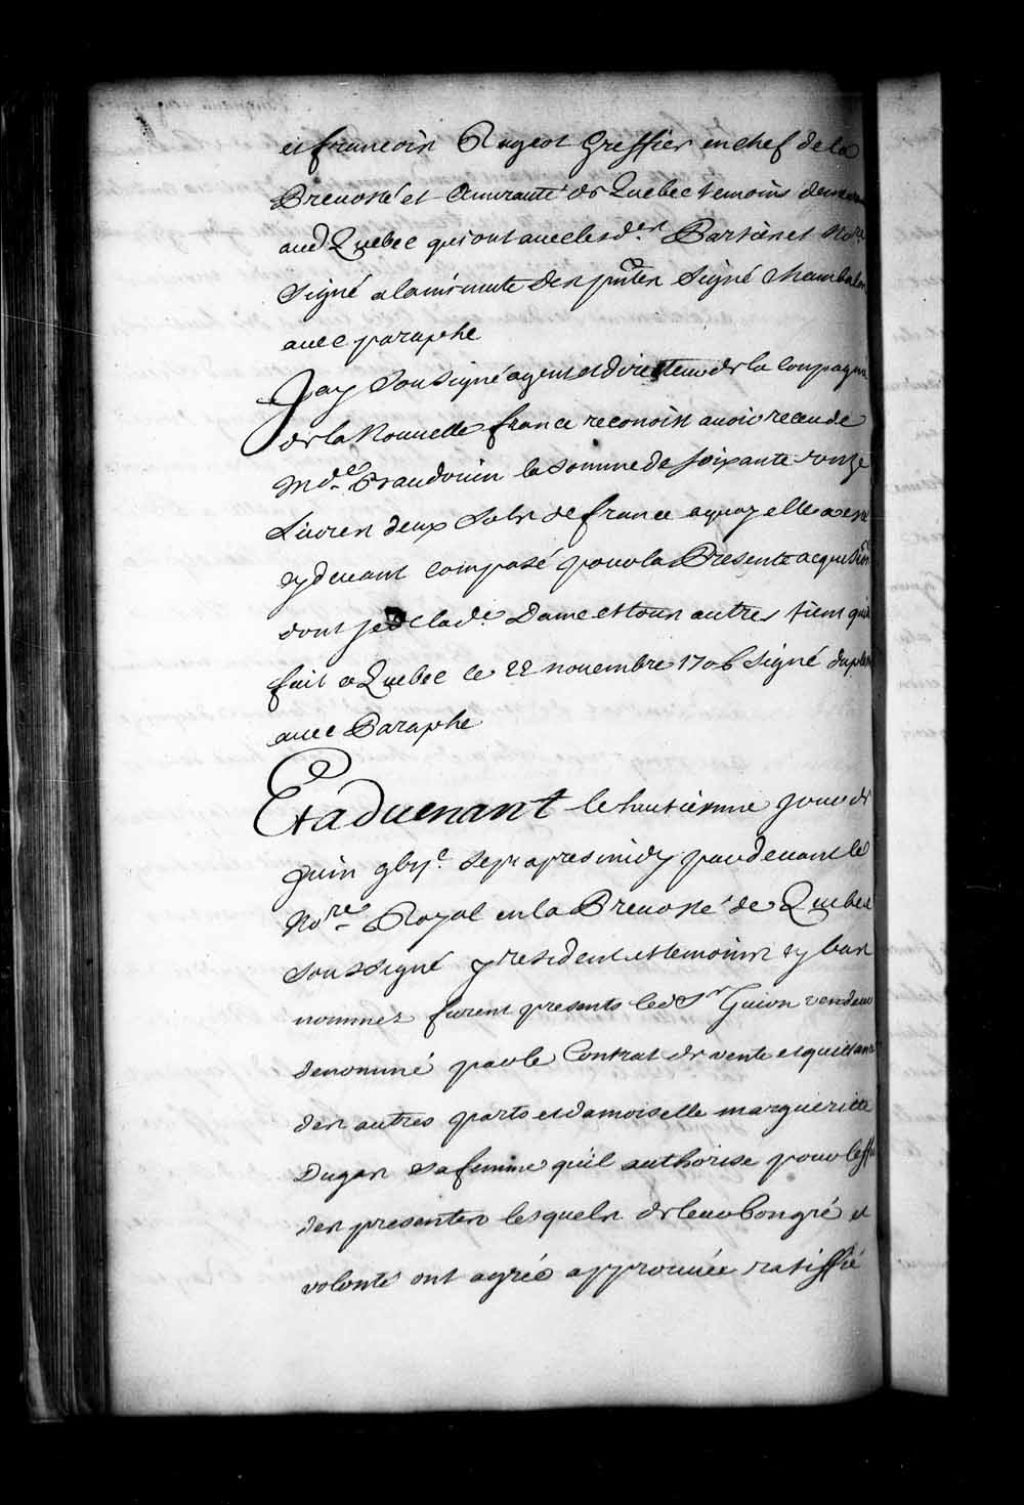 et francois Rageot Greffier en chef de la
Prevosté et Amirauté de Quebec temoins
aud Quebec qui ont avec lesd. Parties et Nore
signé a la minute des pntes Signé Chambalon
avec paraphe
Jay Sousigné agent et directeur de la Compagnie
de la Nouvelle france reconois avoir receu de
Md.e Baudouin la somme de soixante onze
Livres deux Sols de france a quoy elle a esté
cy devant composé pour la Presente acquision
dont je laDe. Dame et tous autres tiens quite
fait a Quebec le 22 novembre 1706 signé
avec Paraphe
Et aduenant le huitiesme jour de
Juin gbije. sept apres midy pardevant le
Nore Royal en la Prevosté de Quebec
Soussigné y resident et temoins cy bas
nommez furent presents led Sr Guion vendeur
denommé par le Contrat de vente et quittance
des autres parts et damoiselle marguerite
Dugas sa femme quil authorise pour leffet
des presentes lesquels de leur bon gré et
volonté ont agréé approuvée ratiffié